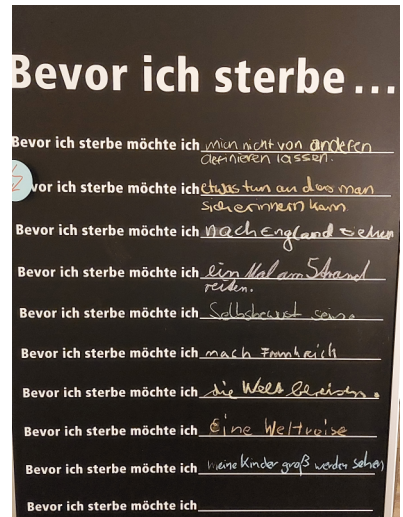 Bevor ich sterbe...
Bevor ich sterbe möchte ich mich nicht von anderen
definieren lassen.
vor ich sterbe möchte ich etwas tun an das man
sich erinnern kann
Bevor ich sterbe möchte ich nach England
Bevor ich sterbe möchte ich ein Mal am Strand
reiten.
Bevor ich sterbe möchte ich Selbsbewust sein.
Bevor ich sterbe möchte ich nach Frankreich
Bevor ich sterbe möchte ich die Welt bereisen.
Bevor ich sterbe möchte ich Eine Weltreise
Bevor ich sterbe möchte ich meine Kinder groß werden sehen
Bevor ich sterbe möchte ich